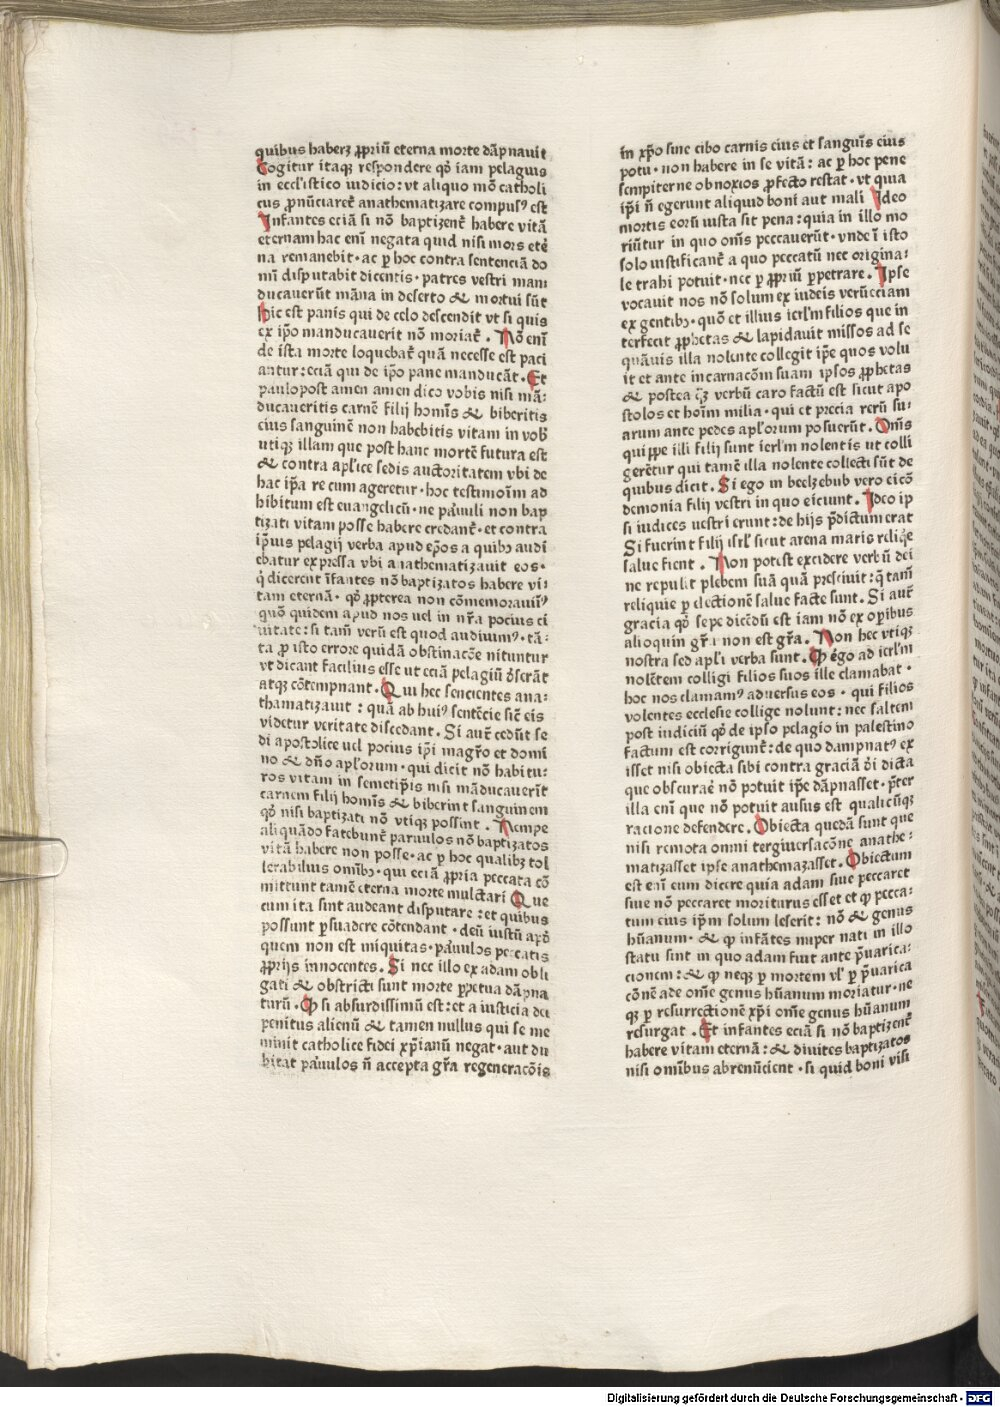 quibus haberꝫ ꝓpriū eterna morte dāpnauit
Cogitur itaqꝫ respondere qꝺ̓ iam pelagius
in eccl'istico iudicio: vt aliquo mō catholi
cus ꝓnūciaret̄ anathematizare compulsꝰ est
Infantes eciā si nō baptizent̄ habere vitā
eternam hac enī negata quid nisi mors etē
na remanebit · ac ꝑ hoc contra sentenciā do
mī disputabit dicentis · patres vestri man
ducauerūt māna in deserto & mortui sūt
hic est panis qui de celo descendit vt si quis
ex ip̄o manducauerit nō moriat̄ . Nō enī
de ista morte loquebat̄ quā necesse est paci
antur : eciā qui de ip̄o pane manducāt . Et
paulopost amen amen dico vobis nisi mā
ducaueritis carnē filij homīs & biberitis
eius sanguinē non habebitis vitam in vob̄
utiqꝫ illam que post hanc mortē futura est
& contra apl'ice sedis auctoritatem vbi de
hac ip̄a re cum ageretur · hoc testimoīm ad
hibitum est euangelicū · ne pauuli non bap
tizati vitam posse habere credant̄ · et contra
ip̄ius pelagij verba apud ep̄os a quibꝰ audi
ebatur expressa vbi anathematizauit eos ·
q̇ dicerent īfantes nō baptizatos habere vi
tam eternā · qꝺ̓ ꝓpterea non cōmemorauimꝰ
quō quidem apud nos uel in nr̄a pocius ci
uitate : si tam̄ verū est quod audiuimꝰ · tā
ta ꝑ isto errore quidā obstinacōne nituntur
vt dicant facilius esse ut eciā pelagiū ꝺ̄serāt
atqꝫ cōtempnant . Qui hec sencientes ana
thamatizauit : quā ab huiꝰ sentēcie sic̄ eis
videtur veritate discedant . Si aut̄ cedūt se
di apostolice uel pocius ip̄i magr̄o et domi
no & dn̄o apl'orum · qui dicit nō habitu
ros vitam in semetip̄is nisi māducauerīt
carnem filij homīs & biberint sanguinem
qꝺ̓ nisi baptizati nō vtiqꝫ possint . Nempe
aliquādo fatebunt̄ paruulos nō baptizatos
vitā habere non posse · ac ꝑ hoc qualibꝫ tol
lerabilius omībꝰ · qui eciā ꝓpria peccata cō
mittunt tamē eterna morte mulctari Que
cum ita sint audeant disputare : et quibus
possunt ꝑsuadere cōtendant · deū iustū apꝺ̓
quem non est iniquitas · pauulos peccatis
ꝓprijs innocentes . Si nec illo ex adam obli
gati & obstricti sunt morte ꝑpetua dāpna
turū . Qꝺ̓ si absurdissimū est : et a iusticia dei
penitus alienū & tamen nullus qui se me
minit catholice fidei xp̄ianū negat · aut du
bitat pauulos n̄ accepta gr̄a regeneracōis
in xp̄o sine cibo carnis eius et sanguīs eius
potu · non habere in se vitā : ac ꝑ hoc pene
sempiterne obnoxios ꝓfecto restat · vt quia
ip̄i n̄ egerunt aliquid boni aut mali Ideo
mortis eorū iusta sit pena : quia in illo mo
riūtur in quo om̄s peccauerūt · vnde ī isto
solo iustificant̄ a quo peccatū nec origina
le trahi potuit · nec ꝑ ꝓpriū ꝑpetrare . Ipse
vocauit nos nō solum ex iudeis verūeciam
ex gentibꝰ · quō et illius ierl'm filios que in
terfecit ꝓphetas & lapidauit missos ad se
quāuis illa nolente collegit ip̄e quos volu
it et ante incarnacōm suam ipsos ꝓphetas
& postea qꝫ verbū caro factū est sicut apo
stolos et hoīm milia · qui et precia rerū su
arum ante pedes apl'orum posuerūt . Om̄s
quippe illi filij sunt ierl'm nolentis ut colli
gerētur qui tamē illa nolente collecti sūt de
quibus dicit . Si ego in beelzebub vero eicō
demonia filij vestri in quo eiciunt . Ideo ip
si iudices uestri erunt : de hijs p̄dictum erat
Si fuerint filij isrl' sicut arena maris reliqꝫe
salue fient . Non potest excidere verbū dei
ne repulit plebem suā quā presciuit : q̄ tam̄
reliquie ꝑ electionē salue facte sunt . Si aut̄
gracia qꝺ̓ sepe dicēdū est iam nō ex oꝑibus
alioquin gr̄a non est gr̄a . Non hec vtiqꝫ
nostra sed apl'i verba sunt . Qꝺ̓ ego ad ierl'm
nolētem colligi filios suos ille clamabat ·
hoc nos clamamꝰ aduersus eos · qui filios
volentes ecclesie collige nolunt : nec saltem
post iudiciū qꝺ̓ de ipso pelagio in palestino
factum est corrigunt̄ : de quo dampnatꝰ ex
isset nisi obiecta sibi contra graciā ꝺ̄i dicta
que obscurae̅ nō potuit ip̄e dāpnasset · p̄ter
illa enī que nō potuit ausus est qualicūqꝫ
racione defendere . Obiecta quedā sunt que
nisi remota omni tergiuersacōne anathe
matizasset ipse anathemazasset . Obiectum
est enī eum dicere quia adam siue peccaret
siue nō peccaret moriturus esset et qꝫ pecca
tum eius ip̄m solum leserit : nō & genus
hūanum · & qꝫ infātes nuper nati in illo
statu sint in quo adam fuit ante p̄uarica
cionem : & qꝫ neqꝫ ꝑ mortem vl' ꝑ p̄uarica
cōnē ade om̄e genus hūanum moriatur · ne
qꝫ ꝑ resurrectionē xp̄i om̄e genus hūanum
resurgat . Et infantes eciā si nō baptizent̄
habere vitam eternā : & diuites baptizatos
nisi omībus abrenūcient · si quid boni visi
Digitalisierung gefördert durch die Deutsche Forschungsgemeinschaft - DFG